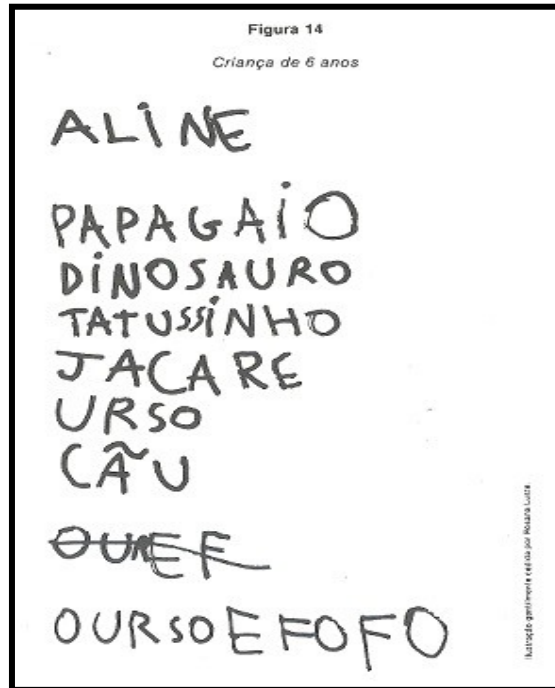 Figura 14
Criança de 6 anos
ALiNE
PAPAGAiO
DiNOSAURO
TATUSSiNHO
JACARE
URSO
CÃU
OURSOEFOFO
Ilustração gentilmente cedida por Rosana